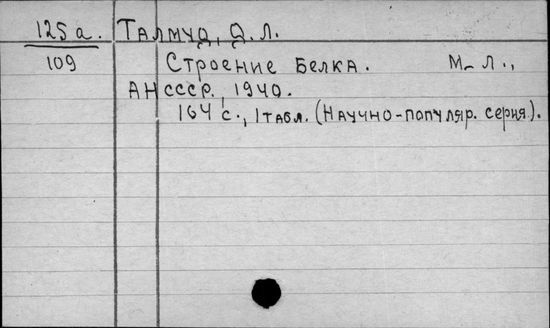 125а. Талмуд, Д. Л.
109 Строение Белка. М-Л.,
АН СССР, 1940.
164 с., 1 табл. (Научно-популяр. серия).